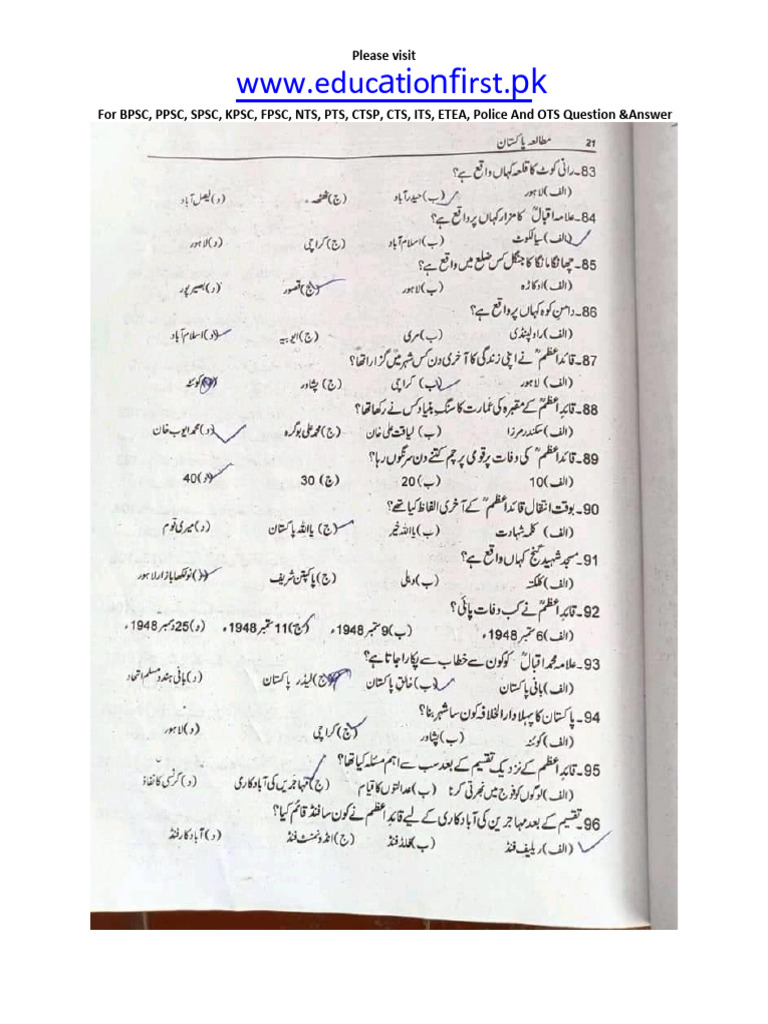 Please visit
www.educationfirst.pk
For BPSC, PPSC, SPSC, KPSC, FPSC, NTS, PTS, CTSP, CTS, ITS, ETEA, Police And OTS Question &Answer
مطالعہ پاکستان 21
83۔رانی کوٹ کا قلعہ کہاں واقع ہے؟
(الف) لاہور (ب) حیدرآباد (ج) ٹھٹھہ (د) فیصل آباد
84۔علامہ اقبالؒ کا مزار کہاں پر واقع ہے؟
(الف) سیالکوٹ (ب) اسلام آباد (ج) کراچی (د) لاہور
85۔چھانگا مانگا کا جنگل کس ضلع میں واقع ہے؟
(الف) اوکاڑہ (ب) لاہور (ج) قصور (د) بصیرپور
86۔دامنِ کوہ کہاں پر واقع ہے؟
(الف) راولپنڈی (ب) مری (ج) ایوبیہ (د) اسلام آباد
87۔قائداعظمؒ نے اپنی زندگی کا آخری دن کس شہر میں گزارا تھا؟
(الف) لاہور (ب) کراچی (ج) پشاور (د) کوئٹہ
88۔قائداعظمؒ کے مقبرہ کی عمارت کا سنگِ بنیاد کس نے رکھا تھا؟
(الف) سکندر مرزا (ب) لیاقت علی خان (ج) محمد علی بوگرہ (د) محمد ایوب خان
89۔قائداعظمؒ کی وفات پر قومی پرچم کتنے دن سرنگوں رہا؟
(الف) 10 (ب) 20 (ج) 30 (د) 40
90۔بوقت انتقال قائداعظمؒ کے آخری الفاظ کیا تھے؟
(الف) کلمہ شہادت (ب) یا اللہ خیر (ج) یا اللہ پاکستان (د) میری قوم
91۔مسجد شہید گنج کہاں واقع ہے؟
(الف) کلکتہ (ب) دہلی (ج) پاکپتن شریف (د) نولکھا بازار لاہور
92۔قائداعظمؒ نے کب وفات پائی؟
(الف) 6 ستمبر 1948ء (ب) 9 ستمبر 1948ء (ج) 11 ستمبر 1948ء (د) 25 دسمبر 1948ء
93۔علامہ محمد اقبالؒ کو کون سے خطاب سے پکارا جاتا ہے؟
(الف) بانی پاکستان (ب) خالقِ پاکستان (ج) لیڈر پاکستان (د) بانی ہندو مسلم اتحاد
94۔پاکستان کا پہلا دارالخلافہ کون سا شہر بنا؟
(الف) کوئٹہ (ب) پشاور (ج) کراچی (د) لاہور
95۔قائداعظمؒ کے نزدیک تقسیم کے بعد سب سے اہم مسئلہ کیا تھا؟
(الف) لوگوں کو فوج میں بھرتی کرنا (ب) عدالتوں کا قیام (ج) مہاجرین کی آبادکاری (د) کرنسی کا نفاذ
96۔تقسیم کے بعد مہاجرین کی آبادکاری کے لیے قائداعظمؒ نے کون سا فنڈ قائم کیا؟
(الف) ریلیف فنڈ (ب) فلڈ فنڈ (ج) انڈومنٹ فنڈ (د) آبادکار فنڈ